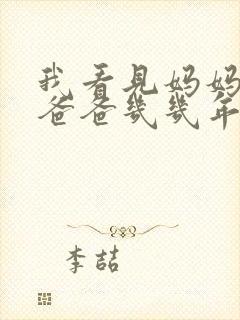 我看见妈妈
爸爸几几年
李喆